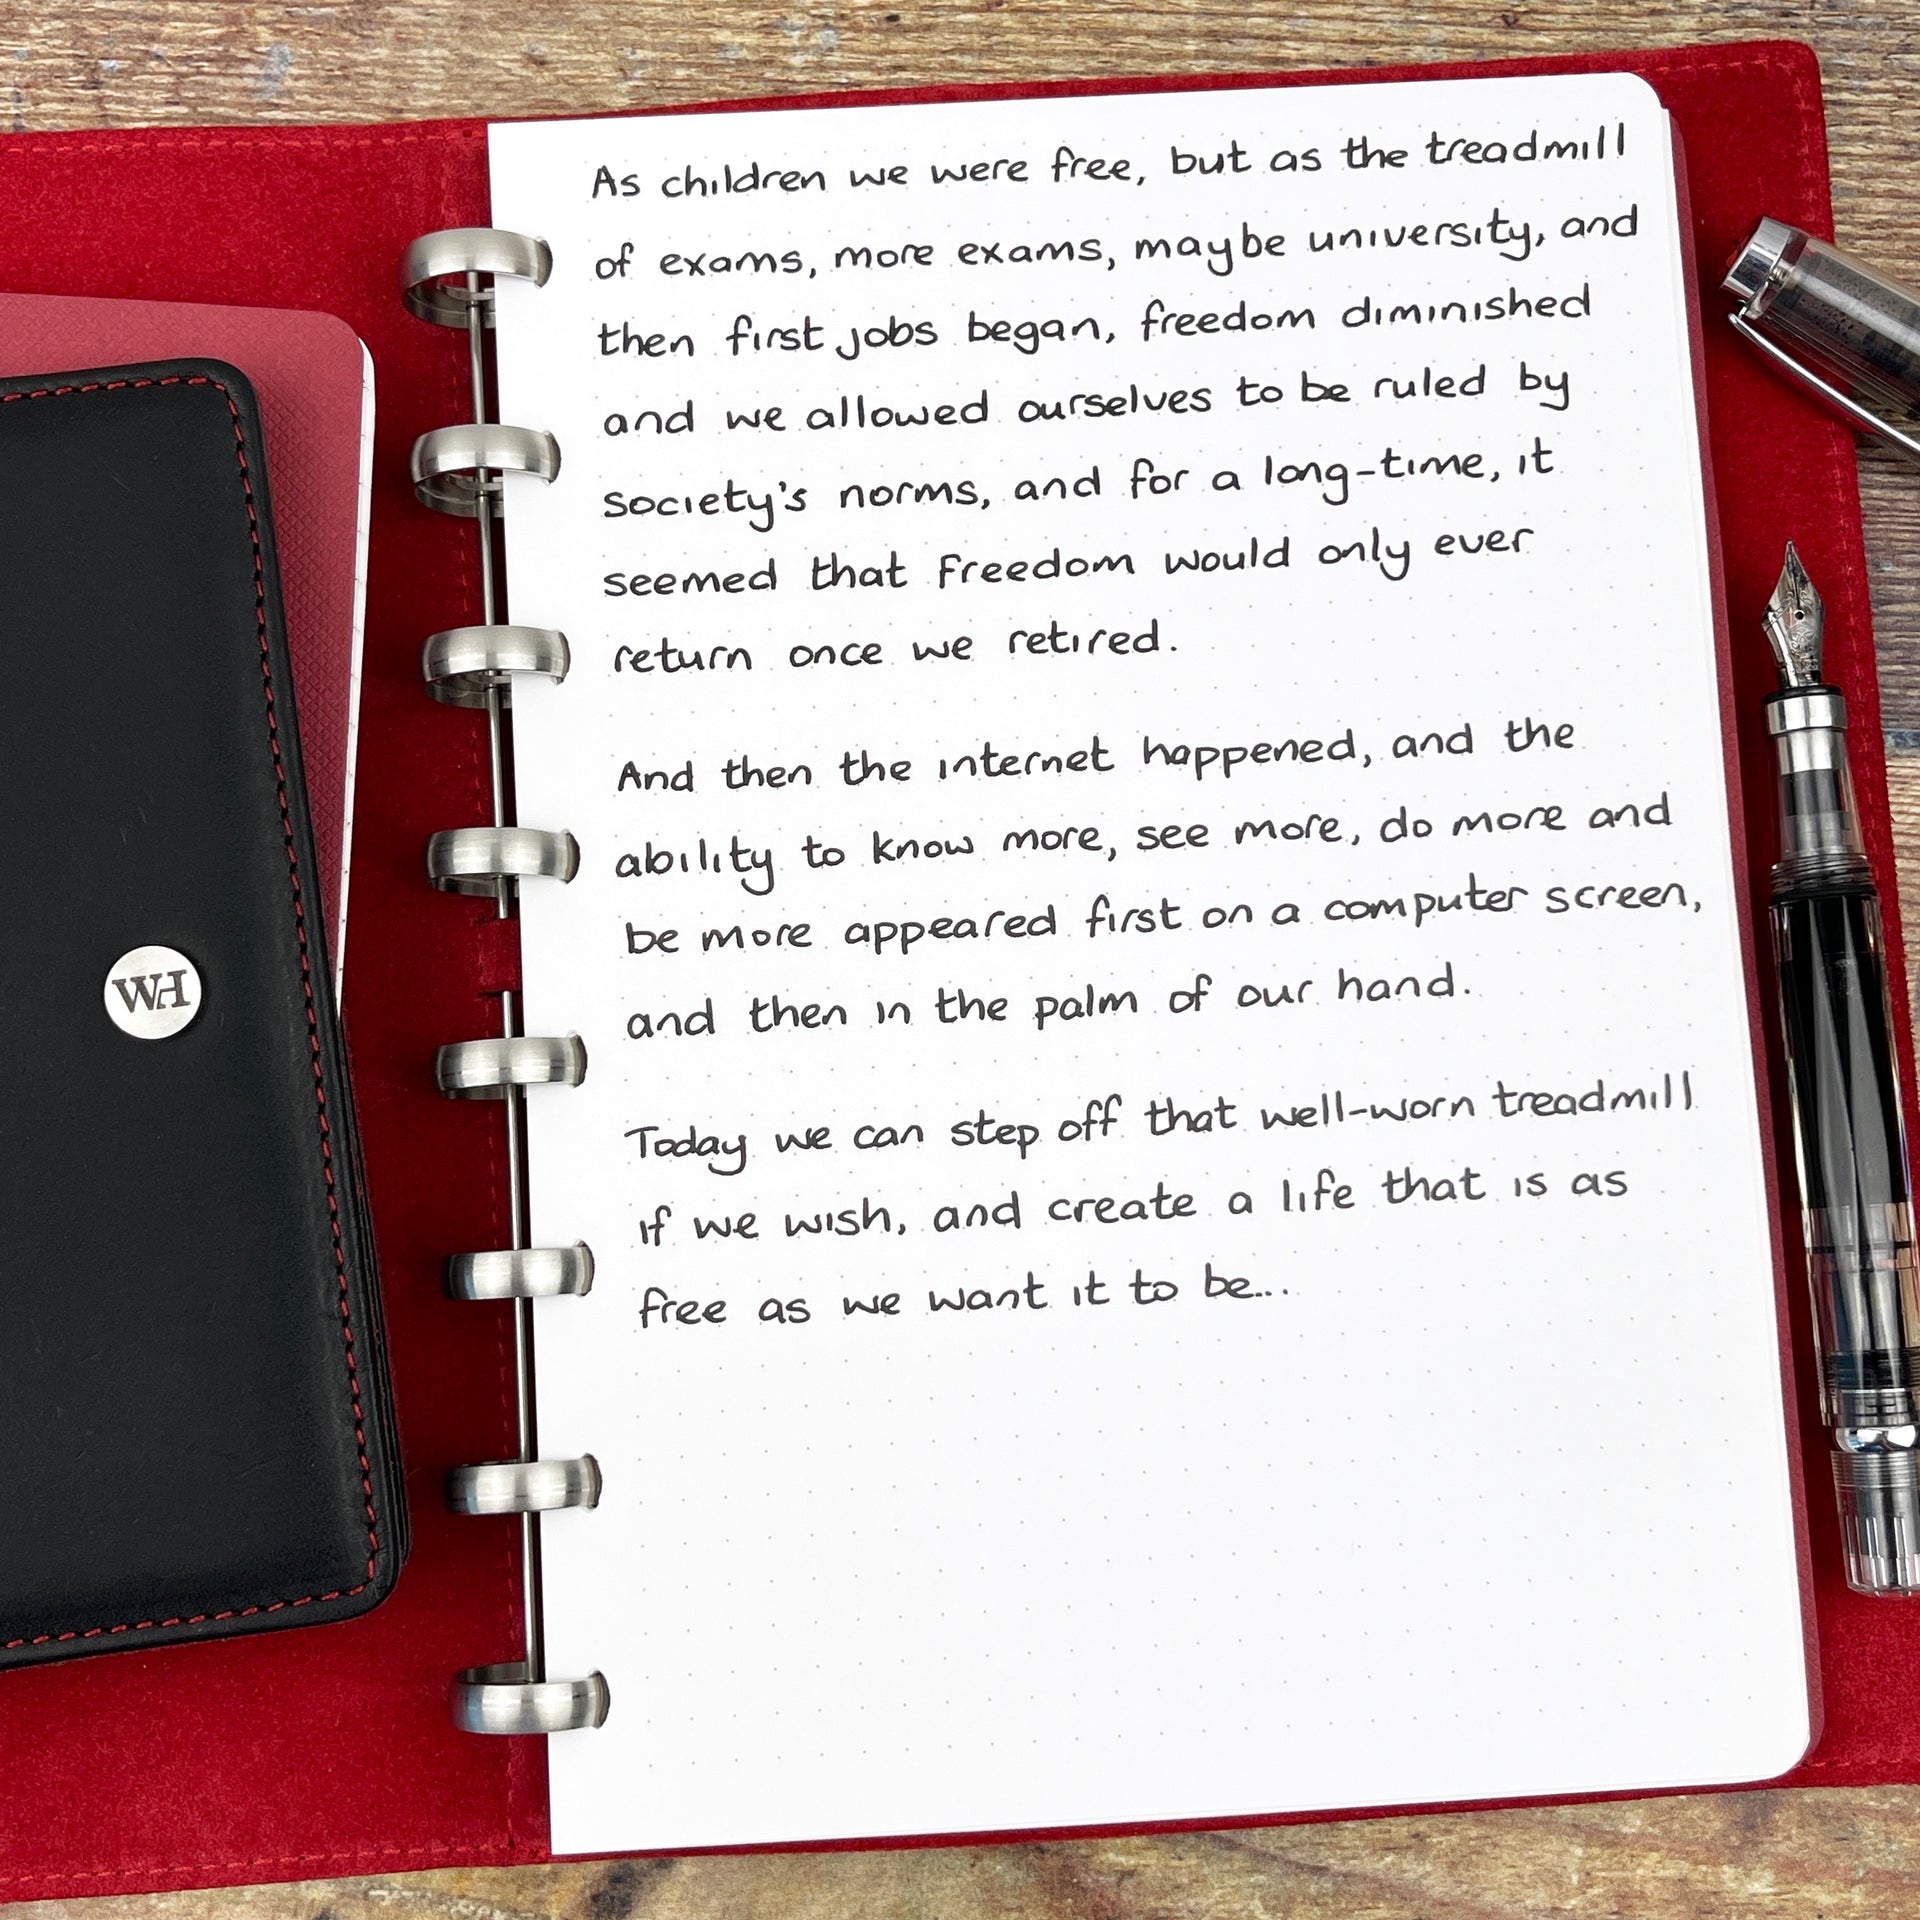 As children we were free, but as the treadmill
of exams, more exams, maybe university, and
then first jobs began, freedom diminished
and we allowed ourselves to be ruled by
society's norms, and for a long-time, it
seemed that freedom would only ever
return once we retired.
And then the internet happened, and the
ability to know more, see more, do more and
be more appeared first on a computer screen,
and then in the palm of our hand.
Today we can step off that well-worn treadmill
if we wish, and create a life that is as
free as we want it to be...
WH